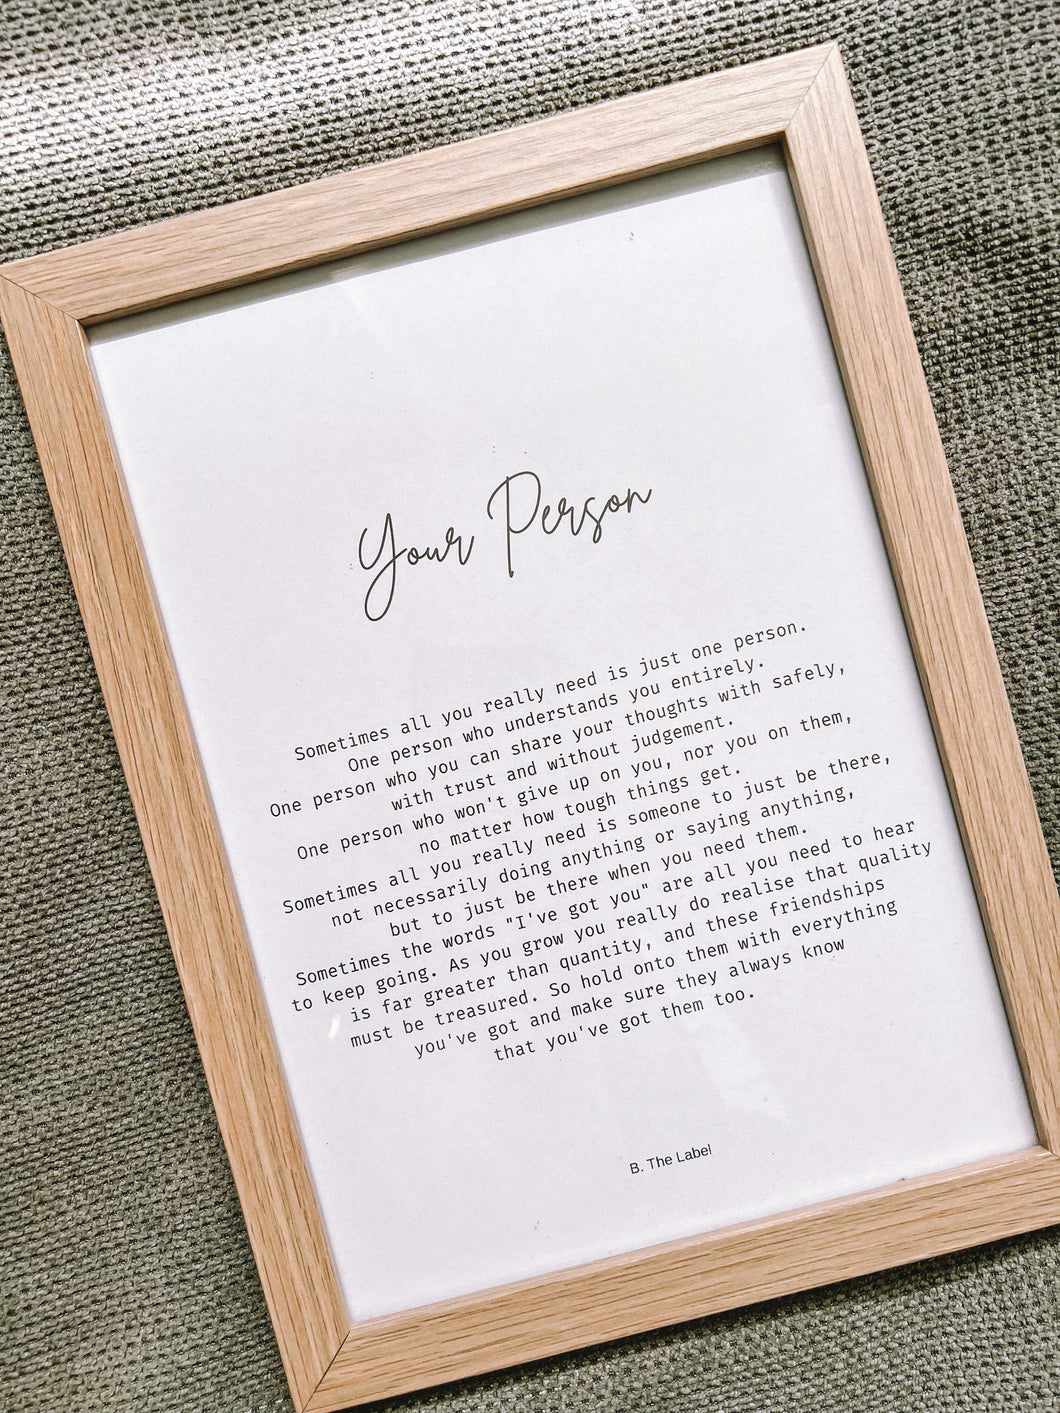 Your Person
Sometimes all you really need is just one person.
One person who understands you entirely.
One person who you can share your thoughts with safely,
with trust and without judgement.
One person who won't give up on you, nor you on them,
no matter how tough things get.
Sometimes all you really need is someone to just be there,
not necessarily doing anything or saying anything,
but to just be there when you need them.
Sometimes the words "I've got you" are all you need to hear
to keep going. As you grow you really do realise that quality
is far greater than quantity, and these friendships
must be treasured. So hold onto them with everything
you've got and make sure they always know
that you've got them too.
B. The Label